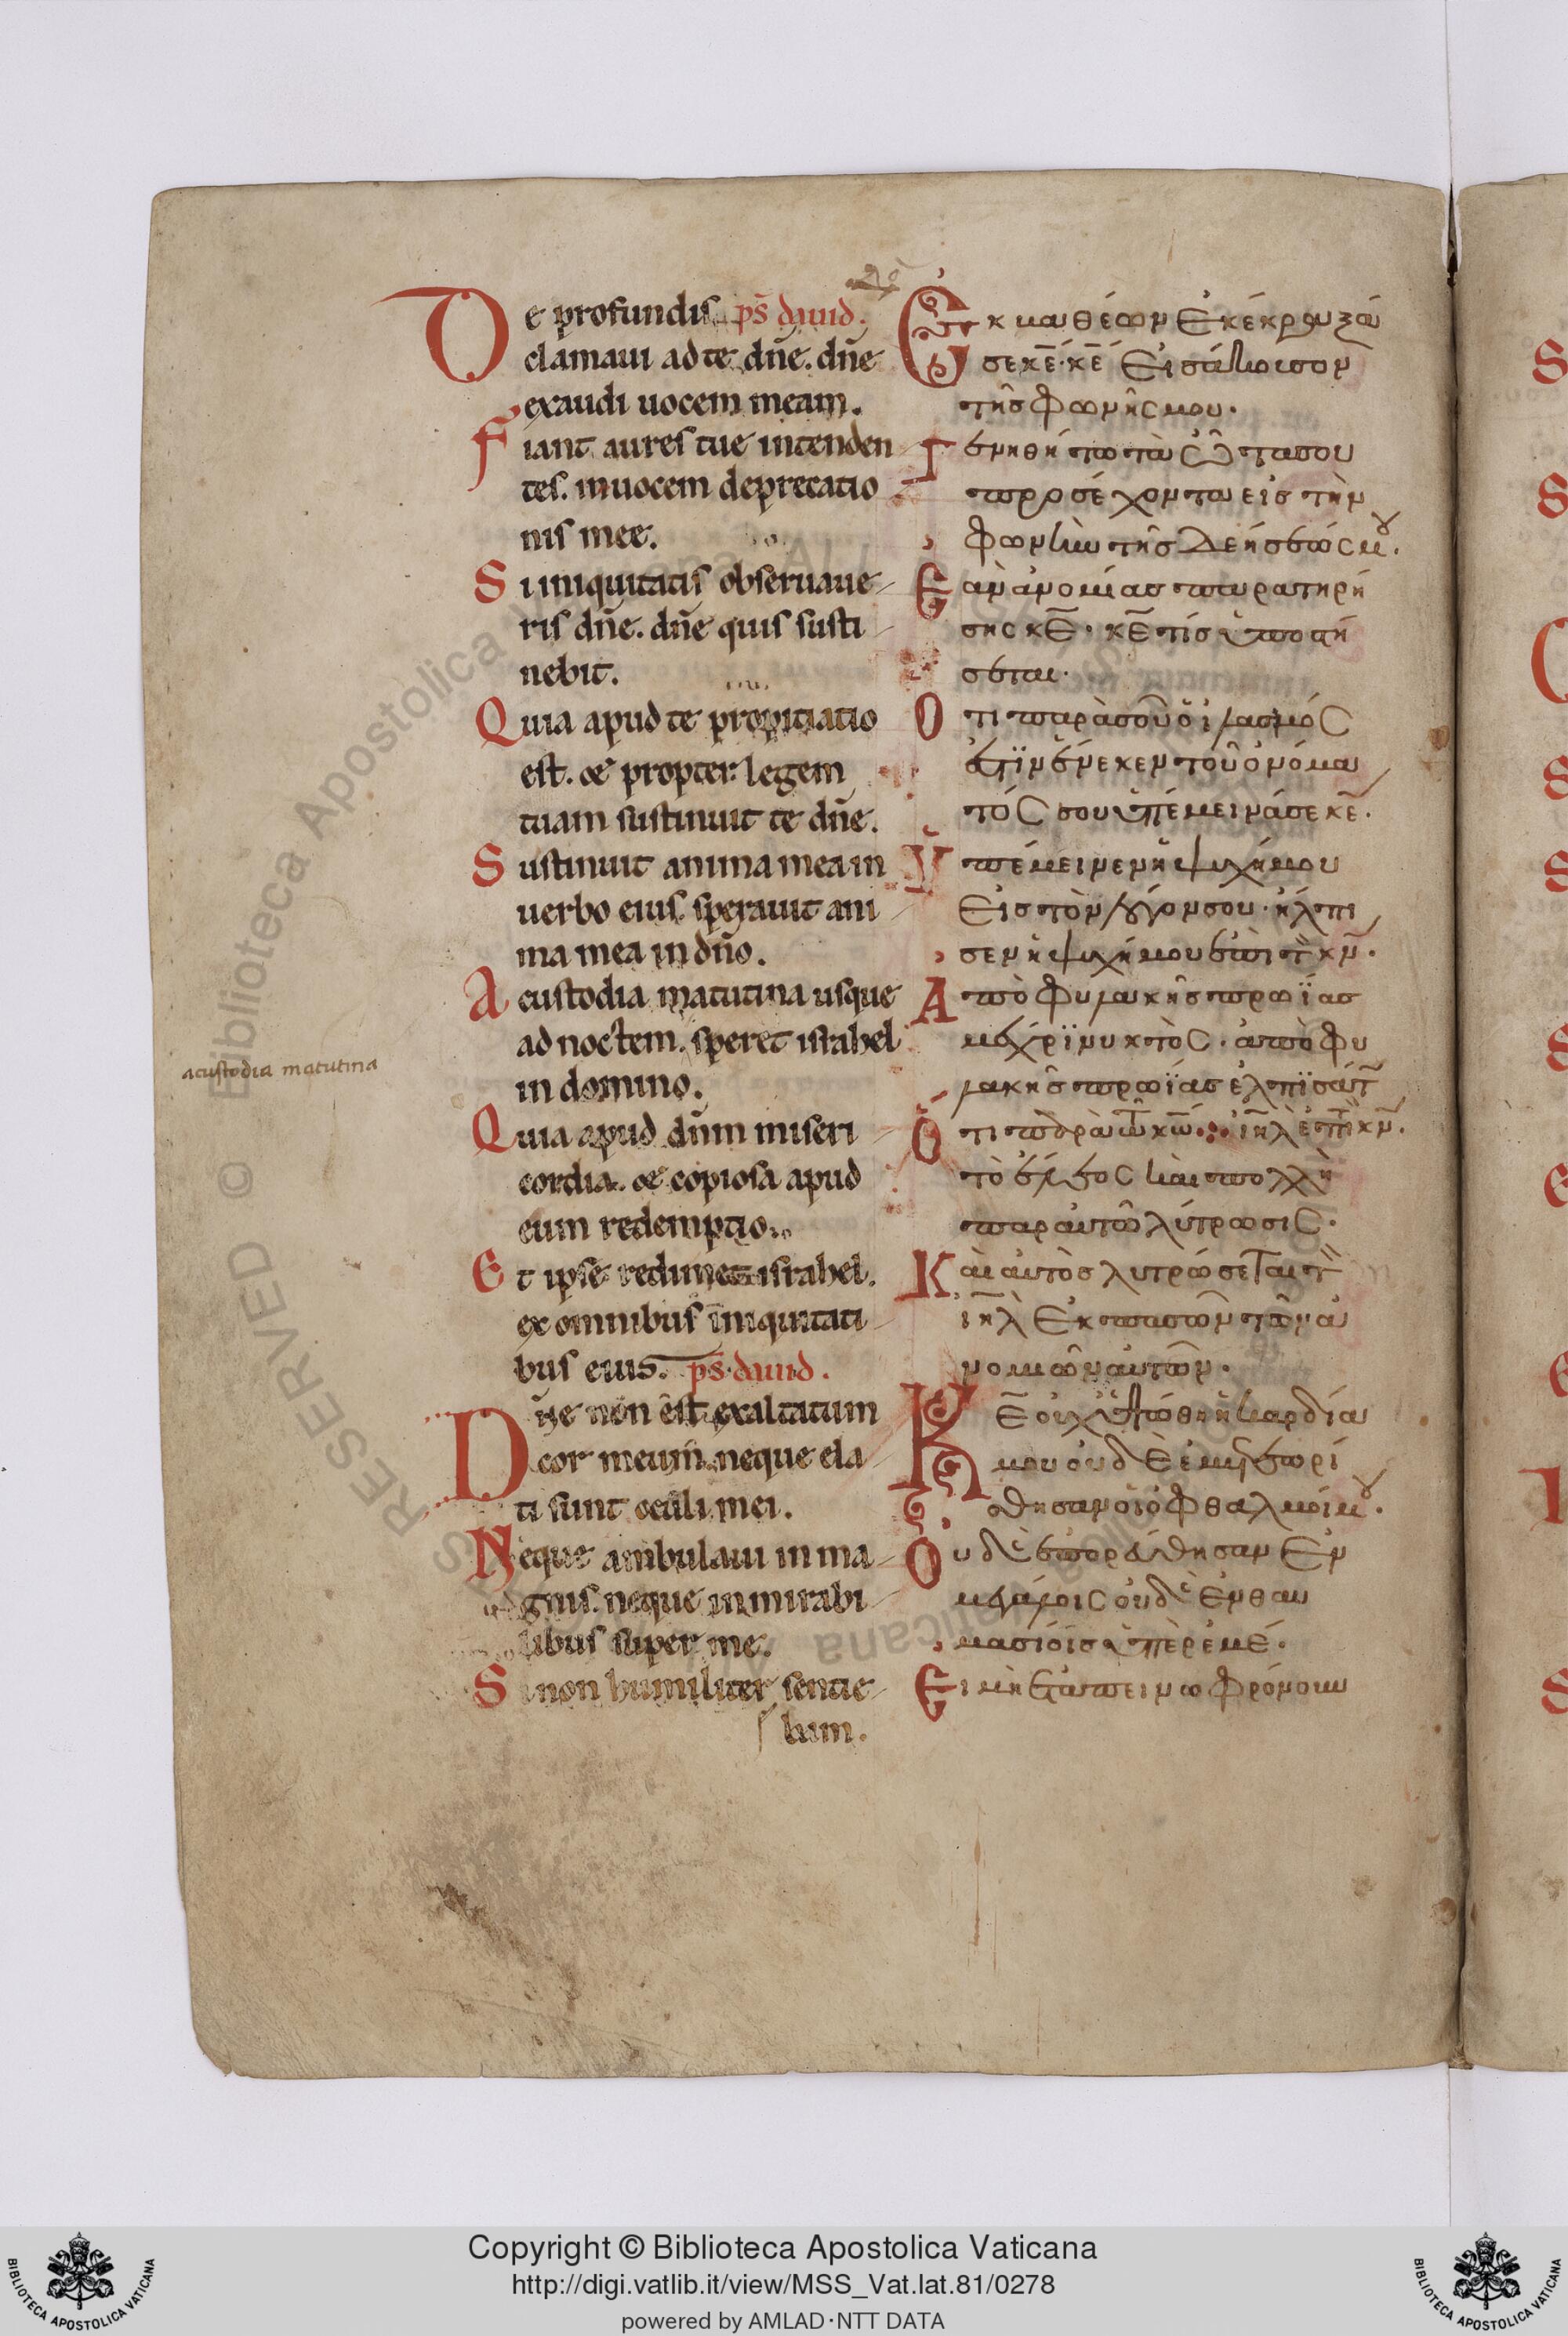 De profundis ps̄ dauid.
clamaui ad te dn̄e. dn̄e
exaudi uocem meam.
Fiant aures tue intenden
tes. in uocem deprecatio
nis mee.
Si iniquitatis obseruaue
ris dn̄e. dn̄e quis susti
nebit.
Quia apud te propitiatio
est. & propter legem
tuam sustinuit te dn̄e.
Sustinuit anima mea in
uerbo eius. sperauit ani
ma mea in dn̄o.
A custodia matutina usque
ad noctem. speret israhel
in domino.
Quia apud dn̄m miseri
cordia. & copiosa apud
eum redemptio.
Et ipse redimet israhel.
ex omnibus iniquitati
bus eius. ps̄. dauid.
Dn̄e non est exaltatum
cor meum. neque ela
ti sunt oculi mei.
Neque ambulaui in ma
gnis. neque in mirabi
libus super me.
Si non humiliter sentie
bam.
a custodia matutina
Ἐκ μαθέων Ἐκέκραυξά
σε κ̄ε̄. κ̄ε̄ Εἰσάκουσον
τῆσ φωνῆς μου.
Γενηθήτω τὰ ὦτα σου
προσέχοντα εἰσ τὴν
φωνὴν τῆσ δεήσεώς μου.
Ἐὰν ἀνομίασ παρατηρή
σης κ̄ε̄. κ̄ε̄ τίσ ὑποστή
σεται.
Ὅτι παρὰ σοῦ ὁ ἱλασμός
ἐστϊν ἕνεκεν τοῦ ὀνόμα
τός σου ὑπέμεινά σε κ̄ε̄.
Ὑπέμεινεν ἡ ψυχή μου
Εἰσ τὸν λόγον σου. ἤλπι
σεν ἡ ψυχή μου ἐπὶ τὸν κ̄ν̄.
Ἀπὸ φυλακῆσ πρωΐασ
μέχρϊ νυκτὸς. ἀπὸ φυ
λακῆσ πρωΐασ ἐλπϊσάτω
ι̅η̅λ̅ ἐπὶ τὸν κ̄ν̄.
Ὅτι παρὰ τῶ κ̄ω̄
τὸ ἔλεος καὶ πολλὴ
παρ αὐτῶ λύτρωσις.
Καὶ αὐτὸσ λυτρώσεται τὸν
ι̅η̅λ̅ Ἐκ πασῶν τῶν ἀ
νομιῶν αὐτῶν.
Κ̄ε̄ οὐχ ὑψώθη ἡ καρδία
μου οὐδὲ ἐμετεωρί
σθησαν οἱ ὀφθαλμοί μου.
Οὐδὲ ἐπορεύθησαν Ἐν
μεγάλοις οὐδὲ Ἐν θαυ
μασίοισ ὑπὲρ ἐμέ.
Εἰ μὴ ἐταπεινωφρόνουν
Copyright © Biblioteca Apostolica Vaticana
http://digi.vatlib.it/view/MSS_Vat.lat.81/0278
powered by AMLAD·NTT DATA